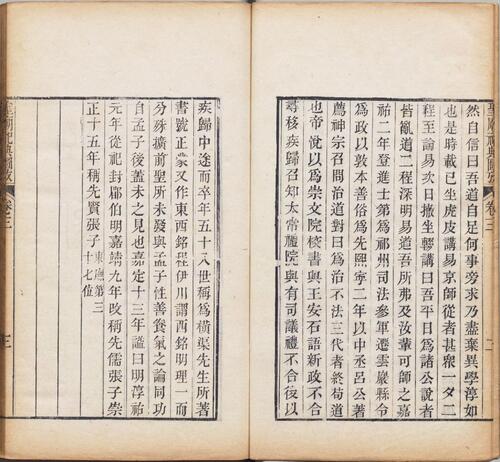 聖廟祀典圖攷 卷三
然自信曰吾道自足何事旁求乃盡棄異學淳如
也是時載已坐虎皮講易京師從者甚衆一夕二
程至論易次日撤坐輟講曰吾平日爲諸公說者
皆亂道二程深明易道吾所弗及汝輩可師之嘉
祐二年登進士第爲祁州司法參軍遷雲巖縣令
爲政以敦本善俗爲先熙寧二年以中丞呂公著
薦神宗召問治道對曰爲治不法三代者終苟道
也帝悅以爲崇文院校書與王安石語新政不合
尋移疾歸召知太常禮院與有司議禮不合復以
疾歸中途而卒年五十八世稱爲橫渠先生所著
書號正蒙又作東西銘程伊川謂西銘明理一而
分殊擴前聖所未發與孟子性善養氣之論同功
自孟子後蓋未之見也嘉定十三年諡曰明淳祐
元年從祀封郿伯明嘉靖九年改稱先儒張子崇
正十五年稱先賢張子 東廡第三
十七位
聖廟祀典圖攷 卷三